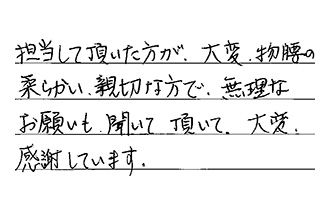 担当して頂いた方が、大変、物腰の
柔らかい、親切な方で、無理な
お願いも、聞いて頂いて、大変、
感謝しています。